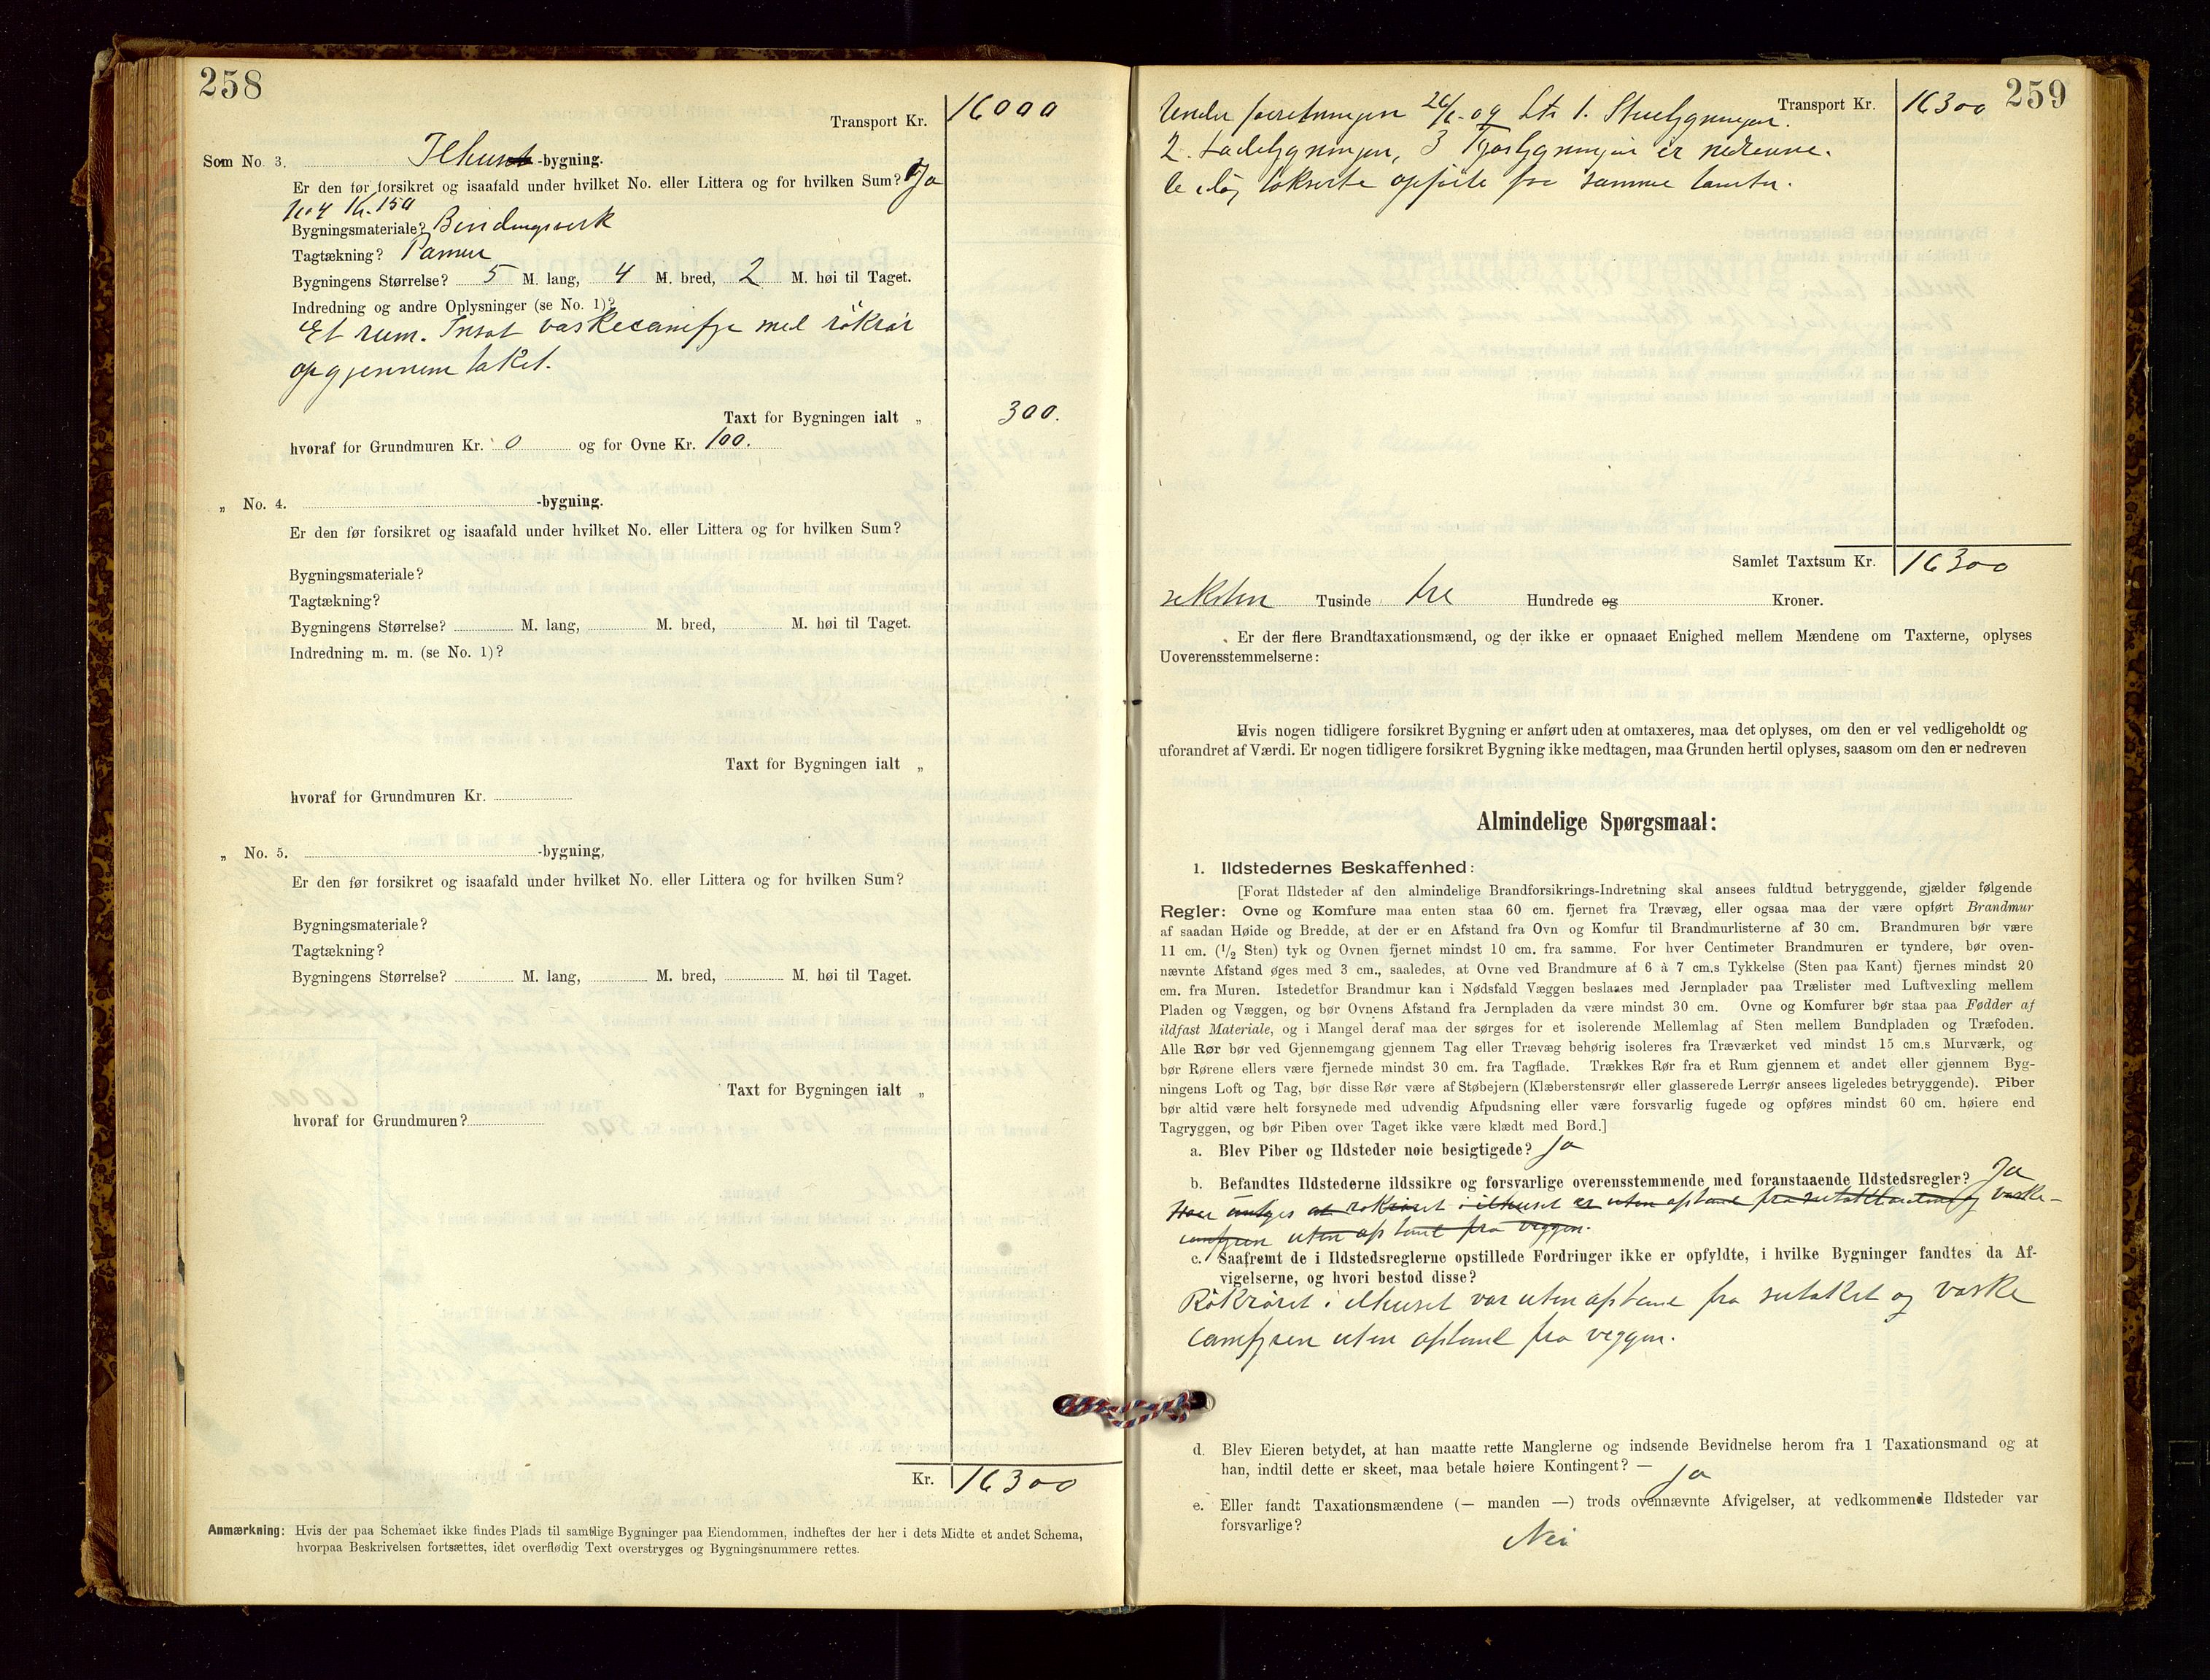 258
Transport Kr. 16000
Som No. 3. Ilhus -bygning.
Er den før forsikret og isaafald under hvilket No. eller Littera og for hvilken Sum? Ja
No 4 Kr. 150
Bygningsmateriale? Bindingsverk
Tagtækning? Panner
Bygningens Størrelse? 5 M. lang, 4 M. bred, 2 M. høi til Taget.
Indredning og andre Oplysninger (se No. 1)?
Et rum. Insat vaskecomfyr med rökrör
op gjennem taket.
Taxt for Bygningen ialt „ 300.
hvoraf for Grundmuren Kr. 0 og for Ovne Kr. 100.
„ No. 4. -bygning.
Er den før forsikret og isaafald under hvilket No. eller Littera og for hvilken Sum?
Bygningsmateriale?
Tagtækning?
Bygningens Størrelse? M. lang, M. bred, M. høi til Taget.
Indredning m. m. (se No. 1)?
Taxt for Bygningen ialt „
hvoraf for Grundmuren Kr.
„ No. 5. -bygning,
Er den før forsikret og isaafald under hvilket No. eller Littera og for hvilken Sum?
Bygningsmateriale?
Tagtækning?
Bygningens Størrelse? M. lang, M. bred, M. høi til Taget.
Taxt for Bygningen ialt „
hvoraf for Grundmuren?
Kr. 16300
Anmærkning: Hvis der paa Schemaet ikke findes Plads til samtlige Bygninger paa Eiendommen, indheftes der her i dets Midte et andet Schema,
hvorpaa Beskrivelsen fortsættes, idet overflødig Text overstryges og Bygningsnummere rettes.
259
Transport Kr. 16300
Under forretningen 09 Ltr 1. Stuebygningen.
2. Ladebygningen, 3 er nedrevne.
takserte opførte for samme tomter.
Samlet Taxtsum Kr. 16300
seksten Tusinde tre Hundrede og Kroner.
Er der flere Brandtaxationsmænd, og der ikke er opnaaet Enighed mellem Mændene om Taxterne, oplyses
Uoverensstemmelserne:
Hvis nogen tidligere forsikret Bygning er anført uden at omtaxeres, maa det oplyses, om den er vel vedligeholdt og
uforandret af Værdi. Er nogen tidligere forsikret Bygning ikke medtagen, maa Grunden hertil oplyses, saasom om den er nedreven
Almindelige Spørgsmaal:
1. Ildstedernes Beskaffenhed:
[Forat Ildsteder af den almindelige Brandforsikrings-Indretning skal ansees fuldtud betryggende, gjælder følgende
Regler: Ovne og Komfure maa enten staa 60 cm. fjernet fra Trævæg, eller ogsaa maa der være opført Brandmur
af saadan Høide og Bredde, at der er en Afstand fra Ovn og Komfur til Brandmurlisterne af 30 cm. Brandmuren bør være
11 cm. (1/2 Sten) tyk og Ovnen fjernet mindst 10 cm. fra samme. For hver Centimeter Brandmuren er tyndere, bør oven-
nævnte Afstand øges med 3 cm., saaledes, at Ovne ved Brandmure af 6 à 7 cm.s Tykkelse (Sten paa Kant) fjernes mindst 20
cm. fra Muren. Istedetfor Brandmur kan i Nødsfald Væggen beslaaes med Jernplader paa Trælister med Luftvexling mellem
Pladen og Væggen, og bør Ovnens Afstand fra Jernpladen da være mindst 30 cm. Ovne og Komfurer bør staa paa Fødder af
ildfast Materiale, og i Mangel deraf maa der sørges for et isolerende Mellemlag af Sten mellem Bundpladen og Træfoden.
Alle Rør bør ved Gjennemgang gjennem Tag eller Trævæg behørig isoleres fra Træværket ved mindst 15 cm.s Murværk, og
bør Rørene ellers være fjernede mindst 30 cm. fra Tagflade. Trækkes Rør fra et Rum gjennem et andet eller gjennem Byg-
ningens Loft og Tag, bør disse Rør være af Støbejern (Klæberstensrør eller glasserede Lerrør ansees ligeledes betryggende). Piber
bør altid være helt forsynede med udvendig Afpudsning eller være forsvarlig fugede og opføres mindst 60 cm. høiere end
Tagryggen, og bør Piben over Taget ikke være klædt med Bord.]
a. Blev Piber og Ildsteder nøie besigtigede? Ja
b. Befandtes Ildstederne ildssikre og forsvarlige overensstemmende med foranstaaende Ildstedsregler? Ja
at rökröret i ilhuset er uten afstand fra og vaske-
comfyren uten afstand fra veggen.
c. Saafremt de i Ildstedsreglerne opstillede Fordringer ikke er opfyldte, i hvilke Bygninger fandtes da Af-
vigelserne, og hvori bestod disse?
Rökröret i ilhuset var uten afstand fra sutaket og vaske
comfyren uten afstand fra veggen.
d. Blev Eieren betydet, at han maatte rette Manglerne og indsende Bevidnelse herom fra 1 Taxationsmand og at
han, indtil dette er skeet, maa betale høiere Kontingent? — Ja
e. Eller fandt Taxationsmændene (— manden —) trods ovennævnte Afvigelser, at vedkommende Ildsteder var
forsvarlige?
Nei